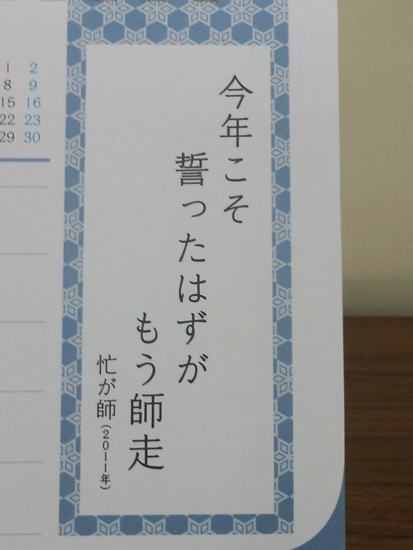 今年こそ
誓ったはずが
もう師走
忙が師(2011年)
1 2
8 9
15 16
22 23
29 30